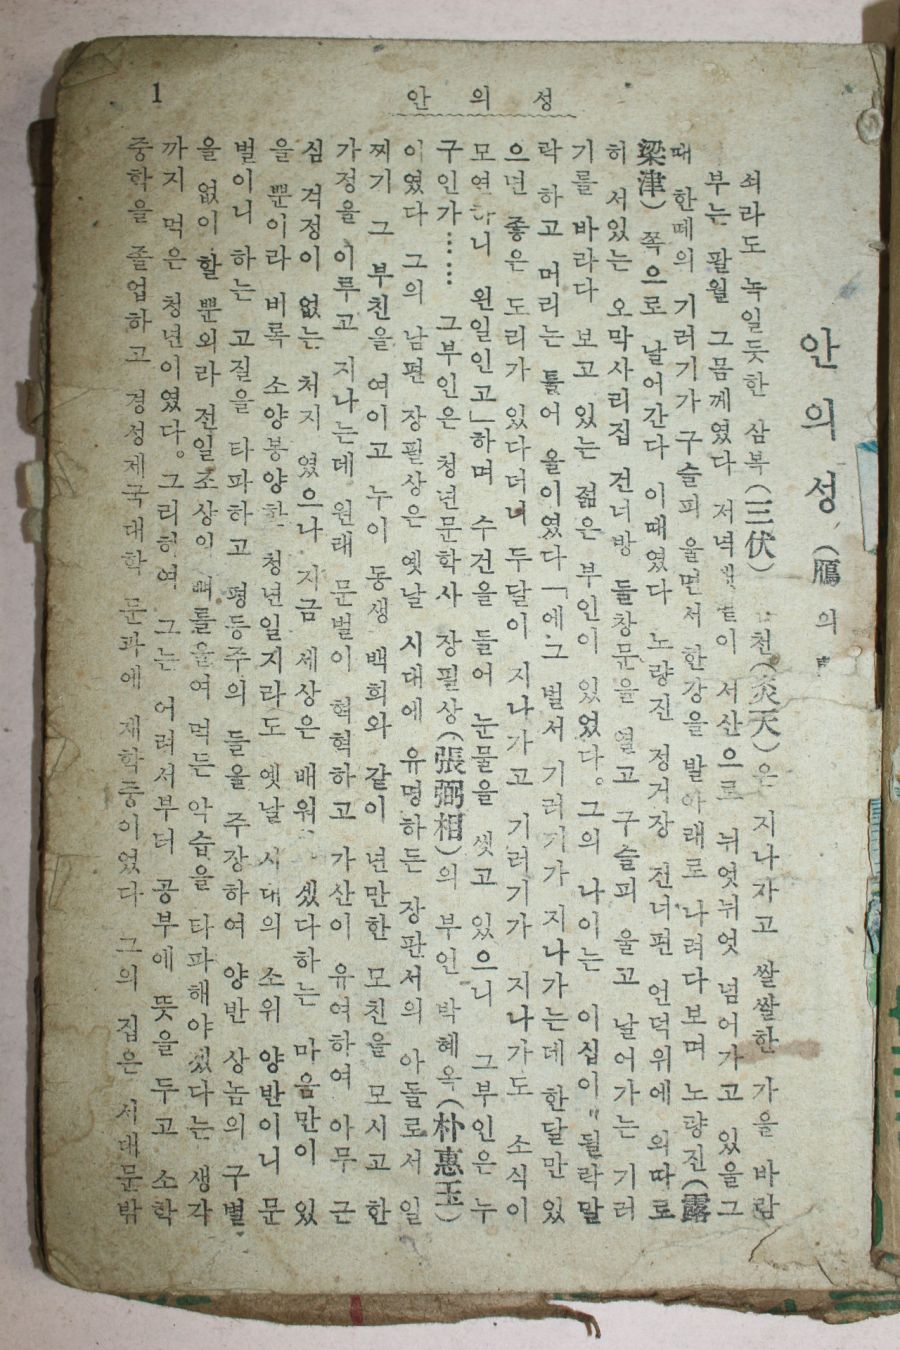 1
안의성
안의성 (鴈의
쇠라도 녹일듯한 삼복(三伏) 천(炎天)은 지나가고 쌀쌀한 가을 바람
부는 팔월 그믐께였다 저녁 이 서산으로 뉘엿뉘엿 넘어가고 있을그
때 한떼의 기러기가 구슬피 울면서 한강을 발아래로 나려다보며 노량진(露
梁津) 쪽으로 날어간다 이때였다 노량진 정거장 건너편 언덕위에 외따로
히 서있는 오막사리집 건너방 들창문을 열고 구슬피 울고 날어가는 기러
기를 바라다 보고 있는 젊은 부인이 있었다。그의 나이는 이십이 될락말
락 하고 머리는 틀어 올이였다「에그 벌서 기러기가 지나가는데 한달만 있
으면 좋은 도리가 있다더니 두달이 지나가고 기러기가 지나가도 소식이
모연하니 원일인고」하며 수건을 들어 눈물을 씻고 있으니 그부인은 누
구인가…… 그부인은 청년문학사 장필상(張弼相)의 부인 박혜옥(朴惠玉)
이였다 그의 남편 장필상은 옛날 시대에 유명하든 장판서의 아들로서 일
찌기 그 부친을 여이고 누이 동생 백희와 같이 년만한 모친을 모시고 한
가정을 이루고 지나는데 원래 문벌이 혁혁하고 가산이 유여하여 아무 근
심 걱정이 없는 처지 였으나 지금 세상은 배워 겠다하는 마음만이 있
을 뿐이라 비록 소양봉양한 청년일지라도 옛날 시대의 소위 양반이니 문
벌이니 하는 고질을 타파하고 평등주의 들을 주장하여 양반 상놈의 구별
을 없이 할 뿐외라 전일조상이 뼈를울여 먹든 악습을 타파해야겠다는 생각
까지 먹은 청년이였다。그리하여 그는 어려서부터 공부에 뜻을 두고 소학
중학을 졸업하고 경성제국대학 문과에 재학중이었다 그의 집은 서대문밖